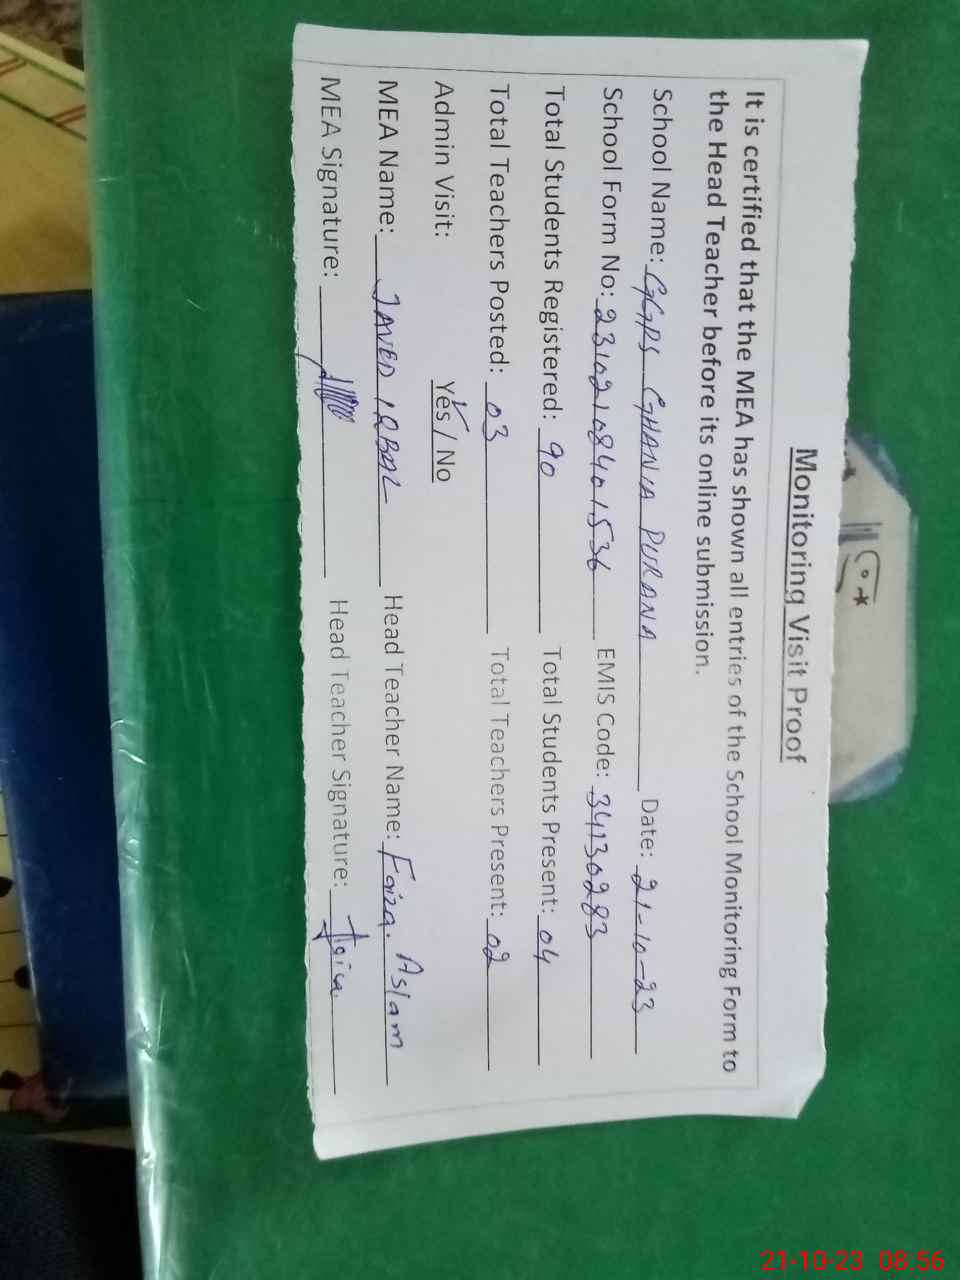 Monitoring Visit Proof
It is certified that the MEA has shown all entries of the School Monitoring Form to
the Head Teacher before its online submission.
School Name: GGPS GHANIA PURANA Date: 21-10-23
School Form No: 23102108401536 EMIS Code: 34130283
Total Students Registered: 90 Total Students Present: 04
Total Teachers Posted: 03 Total Teachers Present: 02
Admin Visit: Yes / No
MEA Name: JAVED IQBAL Head Teacher Name: Faiza. Aslam
MEA Signature: Head Teacher Signature:
21-10-23 08:56